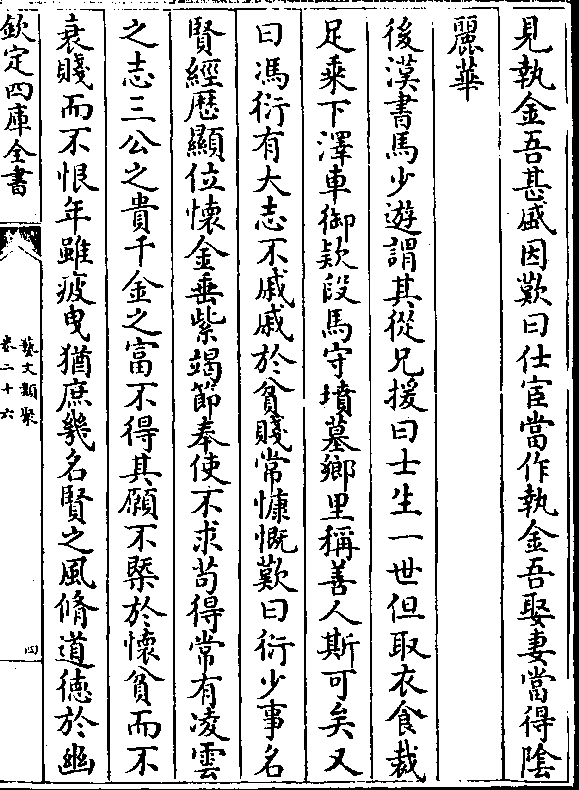 見執金吾甚盛因歎曰仕宦當作執金吾娶妻當得陰
麗華
後漢書馬少遊謂其從兄援曰士生一世但取衣食裁
足乘下澤車御款段馬守墳墓鄉里稱善人斯可矣又
曰馮衍有大志不戚戚於貧賤常慷慨歎曰衍少事名
賢經歴顯位懷金垂紫竭節奉使不求苟得常有凌雲
之志三公之貴千金之富不得其願不槩於懷貧而不
衰賤而不恨年雖疲曳猶庶幾名賢之風脩道德於幽
欽定四庫全書
藝文類聚
卷二十六
四